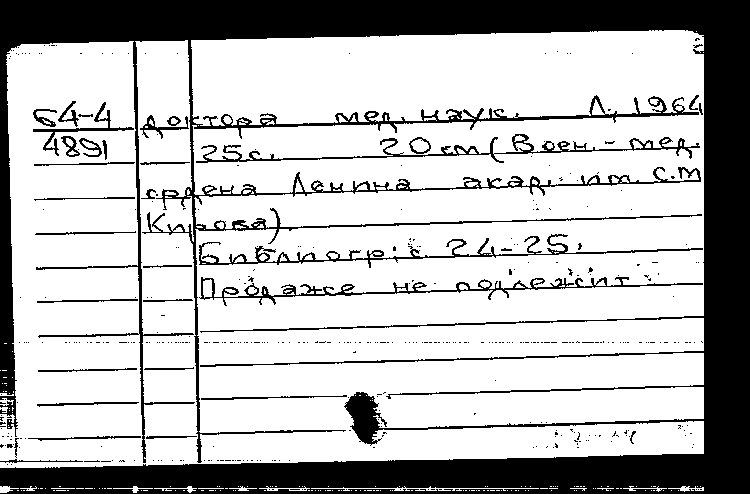 64-4 доктора мед. наук. Л., 1964
4891 25с. 20см (Воен.-мед.
ордена Ленина акад. им. С.М
Кирова).
Библиогр: с. 24-25.
Продаже не подлежит.